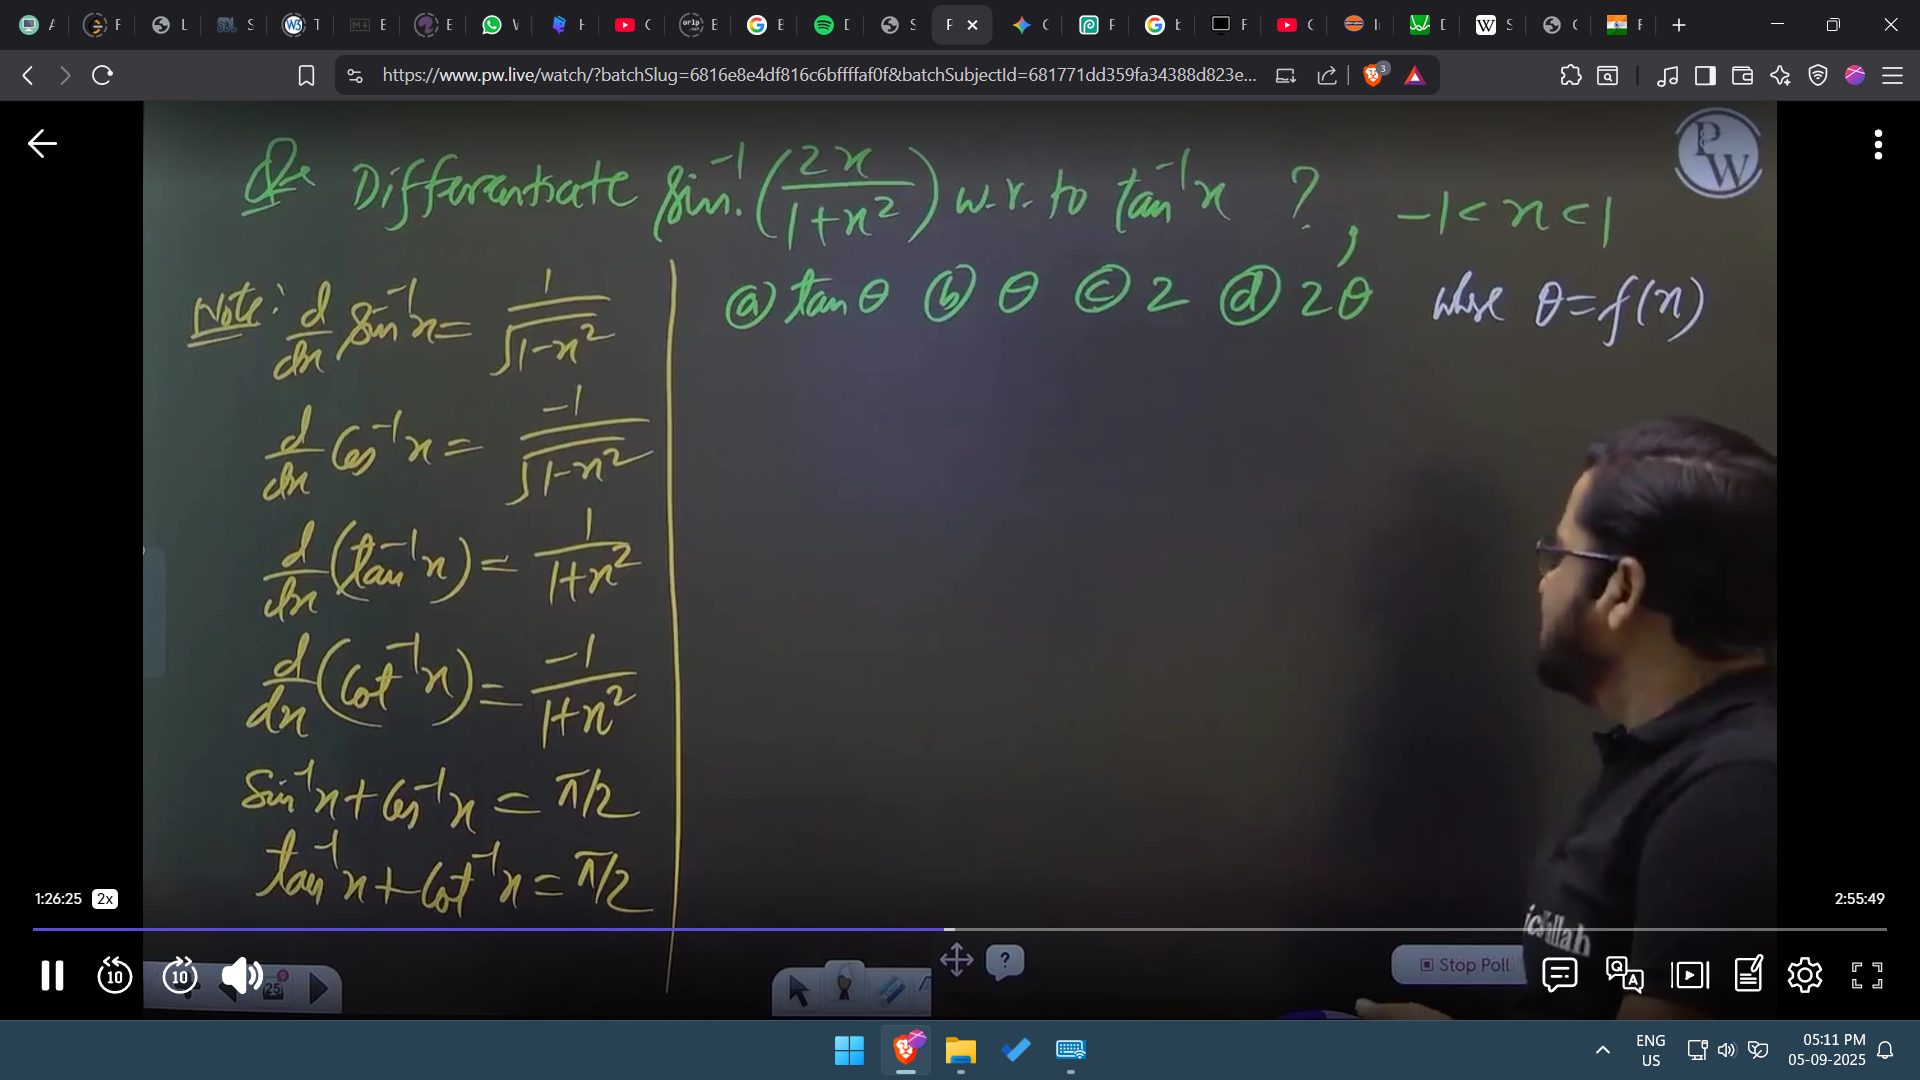 A F L S T E E W F C E E D S P C P E C F C I D S C F
https://www.pw.live/watch/?batchSlug=6816e8e4df816c6bffffaf0f&batchSubjectId=681771dd359fa34388d823e...
3
PW
Q. Differentiate sin⁻¹(2x/(1+x²)) w.r. to tan⁻¹x ?, -1<x<1
ⓐ tanθ ⓑ θ ⓒ 2 ⓓ 2θ where θ=f(x)
Note: d/dx sin⁻¹x = 1/√(1-x²)
d/dx cos⁻¹x = -1/√(1-x²)
d/dx (tan⁻¹x) = 1/(1+x²)
d/dx (cot⁻¹x) = -1/(1+x²)
sin⁻¹x + cos⁻¹x = π/2
tan⁻¹x + cot⁻¹x = π/2
1:26:25 2x
2:55:49
10 10
25
?
Stop Poll
ENG
US
05:11 PM
05-09-2025